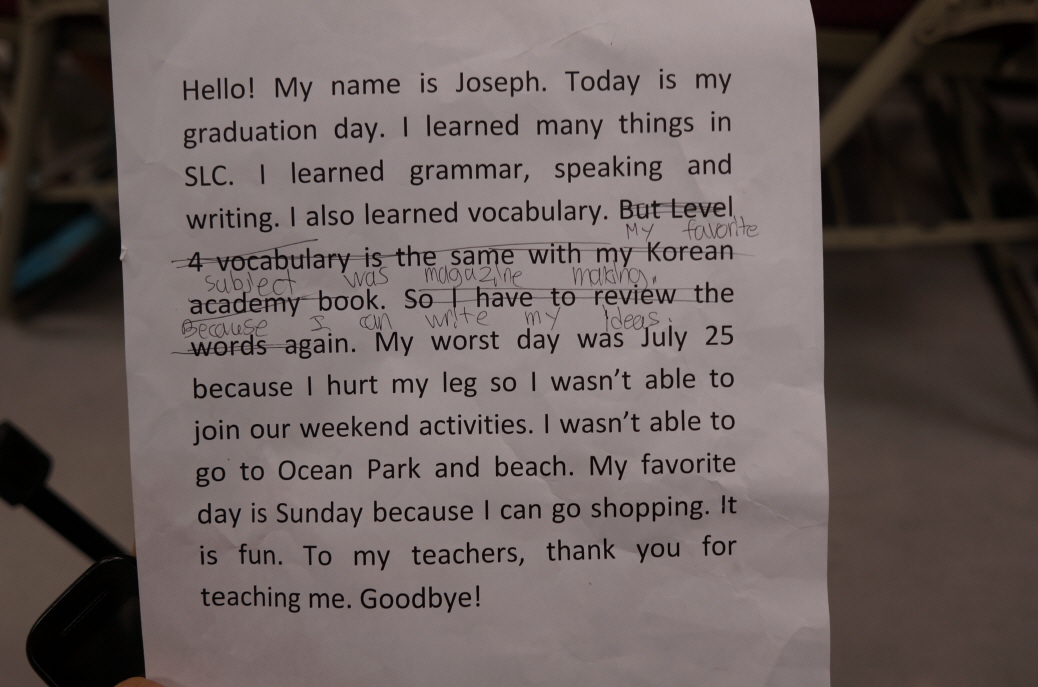 Hello! My name is Joseph. Today is my
graduation day. I learned many things in
SLC. I learned grammar, speaking and
writing. I also learned vocabulary. But Level
My favorite
4 vocabulary is the same with my Korean
subject was magazine making.
academy book. So I have to review the
Because I can write my ideas.
words again. My worst day was July 25
because I hurt my leg so I wasn't able to
join our weekend activities. I wasn't able to
go to Ocean Park and beach. My favorite
day is Sunday because I can go shopping. It
is fun. To my teachers, thank you for
teaching me. Goodbye!